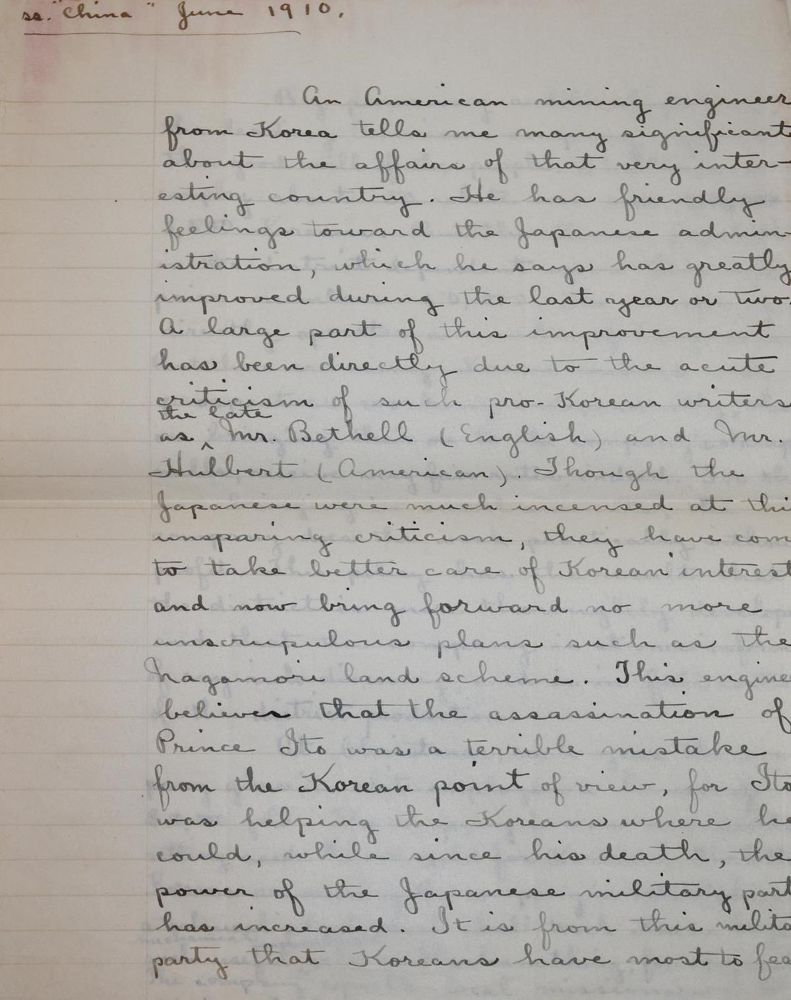 ss. "China" June 1910.
An American mining engineer
from Korea tells me many significant
about the affairs of that very inter-
esting country. He has friendly
feelings toward the Japanese admin-
istration, which he says has greatly
improved during the last year or two.
A large part of this improvement
has been directly due to the acute
criticism of such pro-Korean writers
the late
as ^ Mr. Bethell (English) and Mr.
Hulbert (American). Though the
Japanese were much incensed at thi
unsparing criticism, they have com
to take better care of Korean interest
and now bring forward no more
unscrupulous plans such as the
Nagamori land scheme. This engine
believes that the assassination of
Prince Ito was a terrible mistake
from the Korean point of view, for Ito
was helping the Koreans where he
could, while since his death, the
power of the Japanese military part
has increased. It is from this milita
party that Koreans have most to fea